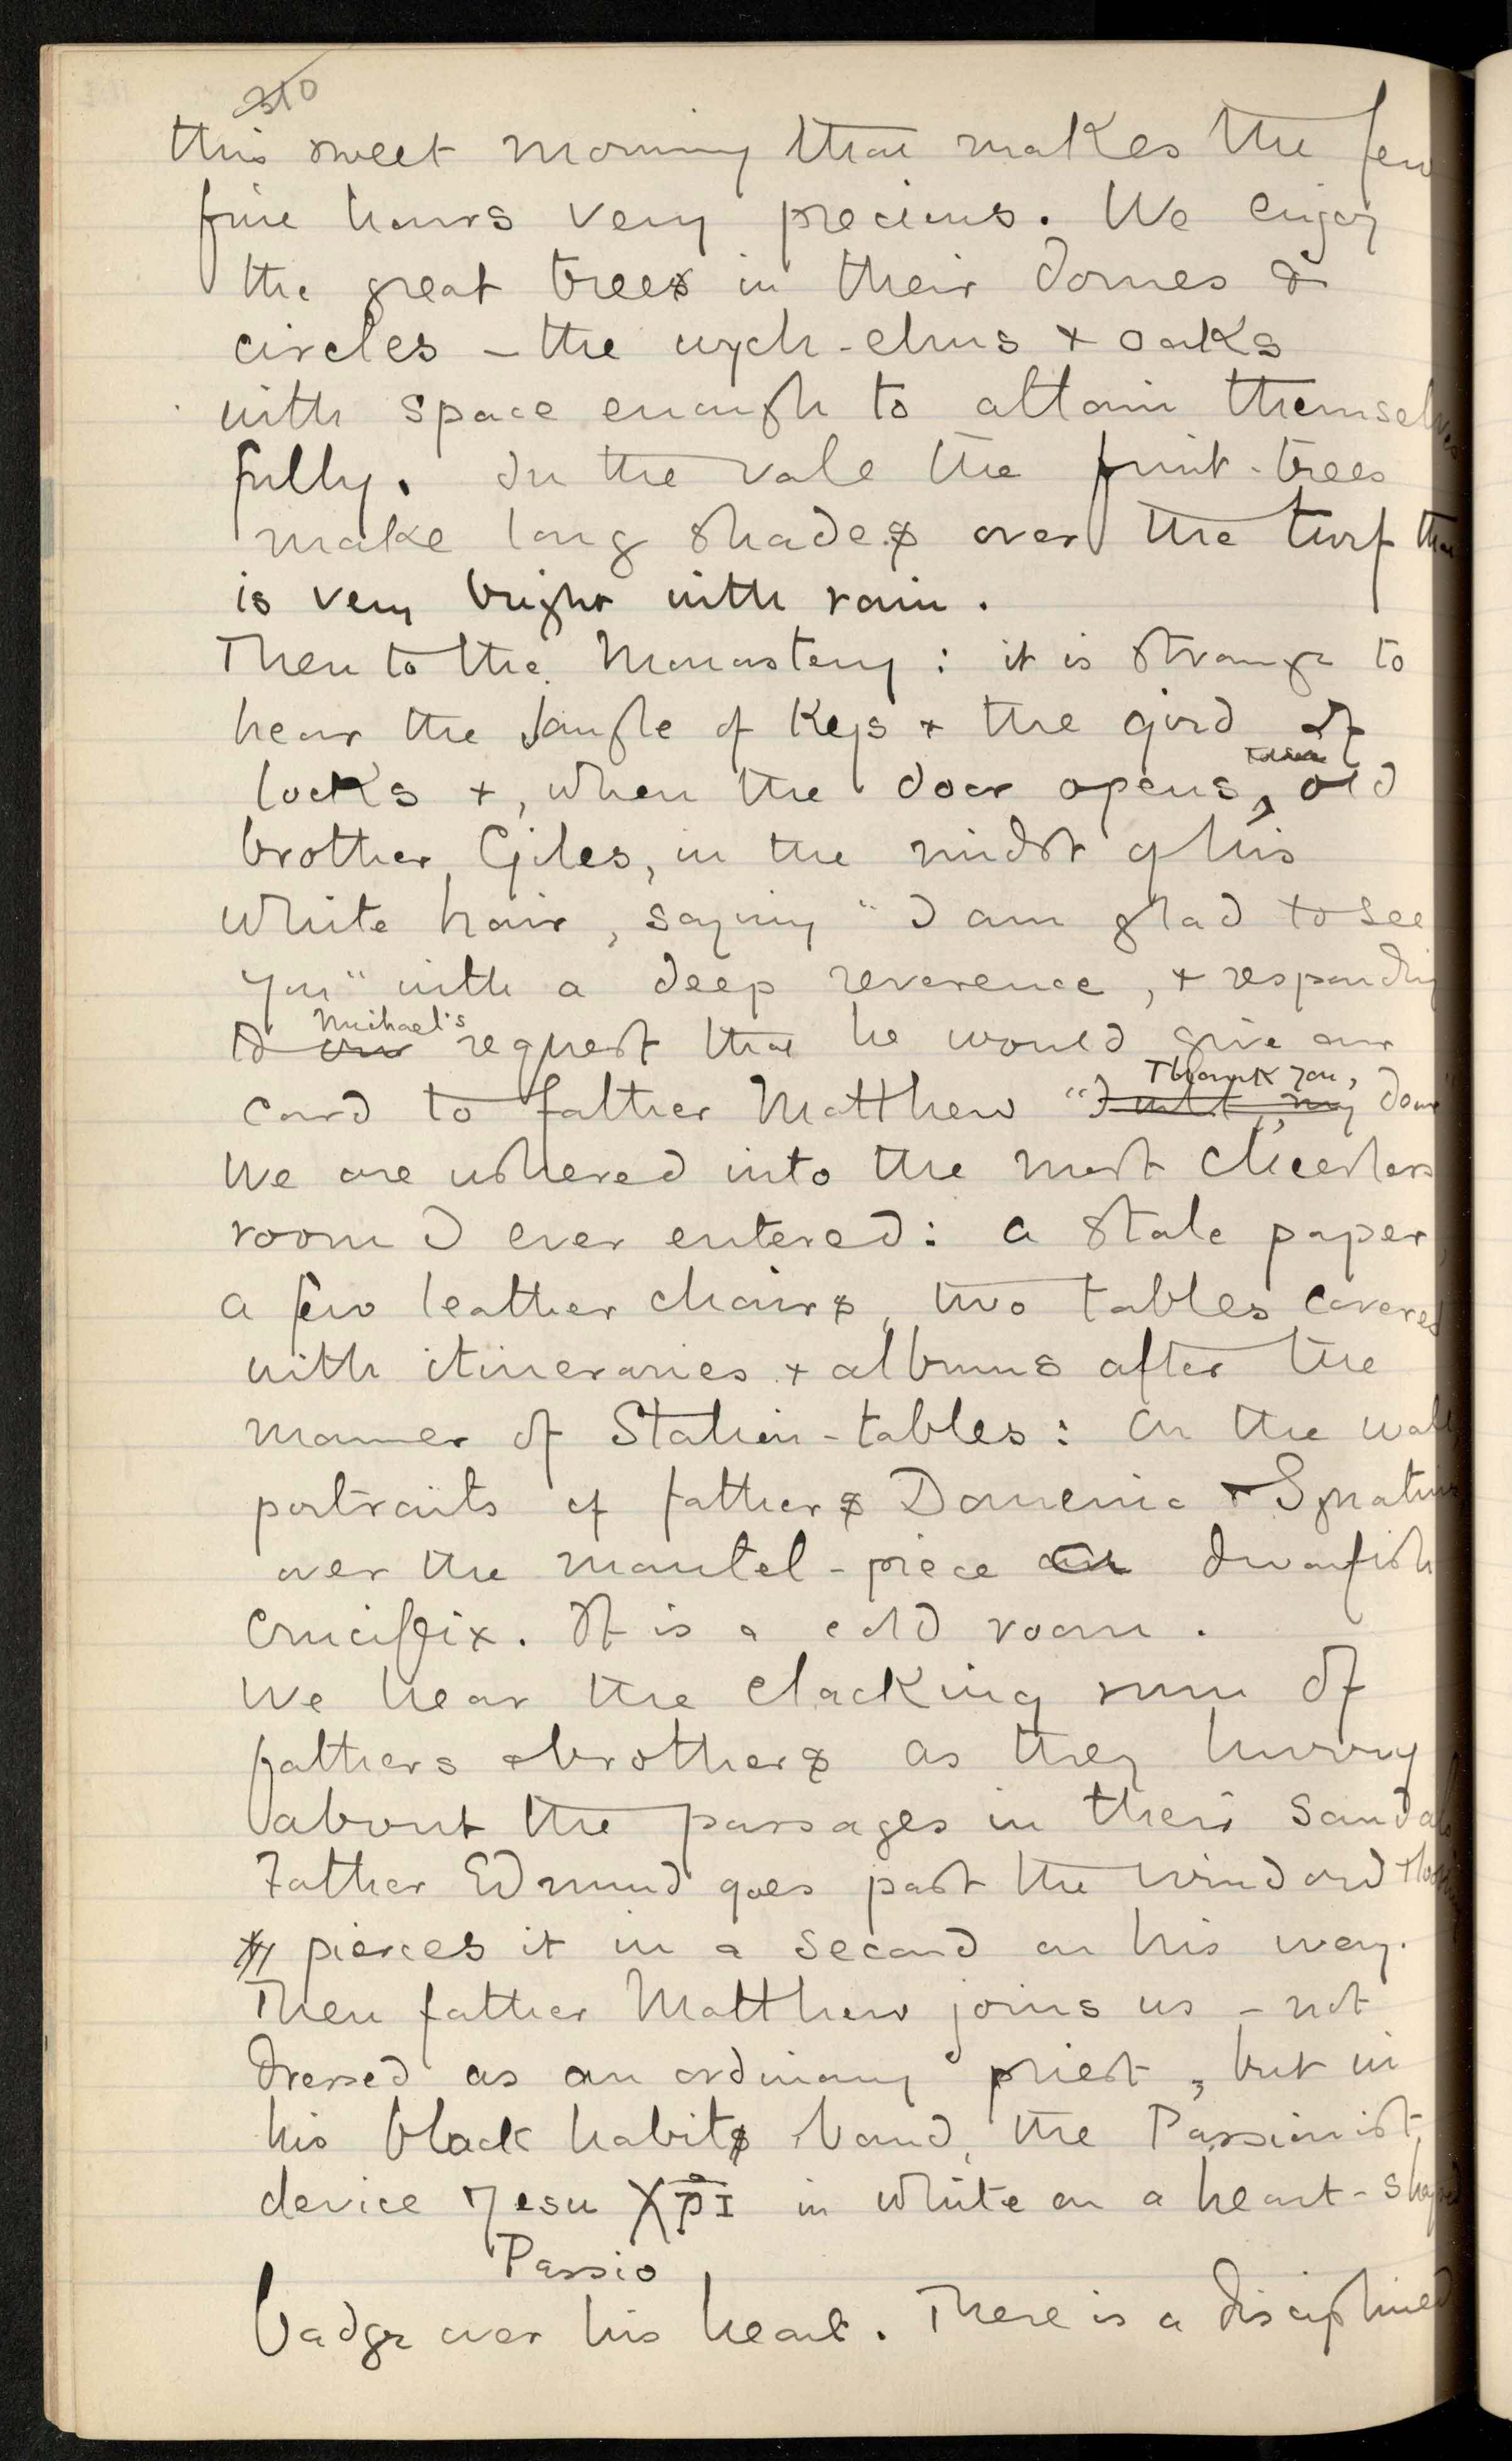 this sweet morning that makes the few
fine hours very precious. We enjoy
the great trees in their domes &
circles – the wych-elms + oaks
with space enough to attain themselves
fully. In the vale the fruit-trees
make long shades over the turf that
is very bright with rain.
Then to the Monastery: it is strange to
hear the jangle of Keys + the gird of
locks +, when the door opens, old
brother Giles, in the midst of his
white hair, saying "I am glad to see
you" with a deep reverence, + responding
to our Michael's request that he would give our
card to father Matthew "I will, my Thank you,
We are ushered into the most cheerless
room I ever entered: a stale paper,
a few leather chairs, two tables covered
with itineraries + albums after the
manner of Station-tables: on the wall
portraits of fathers Domenic + Ignatius
over the mantel-piece a dwarfish
crucifix. It is a cold room.
We hear the clacking run of
fathers + brothers as they hurry
about the passages in their sandals
Father Edmund goes past the window
pierces it in a second on his way.
Then father Matthew joins us – not
dressed as an ordinary priest, but in
his black habit, band, the Passionist
device Jesu XPI in white on a heart-shaped
Passio
badge over his heart. There is a disciplined